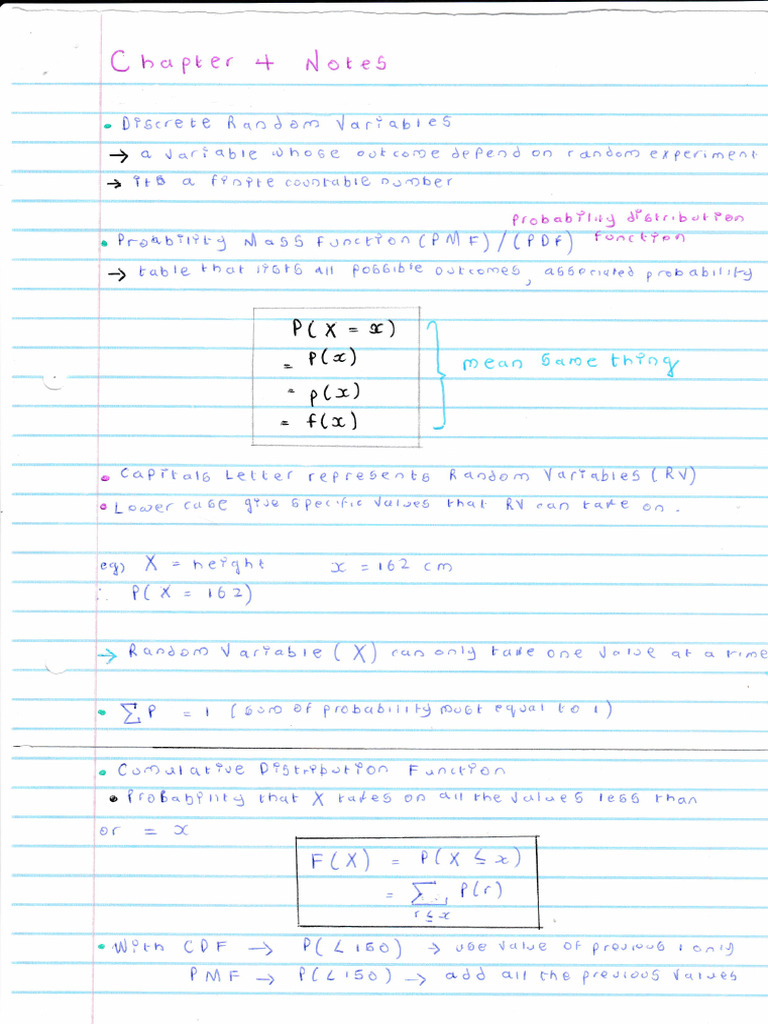 Chapter 4 Notes
• Discrete Random Variables
→ a variable whose outcome depend on random experiment
→ its a finite countable number
• Probability Mass Function (PMF) / (PDF) probability distribution function
→ table that lists all possible outcomes, associated probability
P( X = x )
= P(x)
= p(x)
= f(x)
mean same thing
• Capitals Letter represents Random Variables (RV)
• Lower case give specific values that RV can take on.
eg) X = height x = 162 cm
∴ P( X = 162)
→ Random Variable ( X ) can only take one value at a time
• ∑ P = 1 (sum of probability must equal to 1)
• Cumulative Distribution Function
• Probability that X takes on all the values less than
or = x
F(X) = P(X ≤ x)
= ∑ P(r)
r ≤ x
• With CDF → P( < 150) → use value of previous 1 only
PMF → P( < 150) → add all the previous values